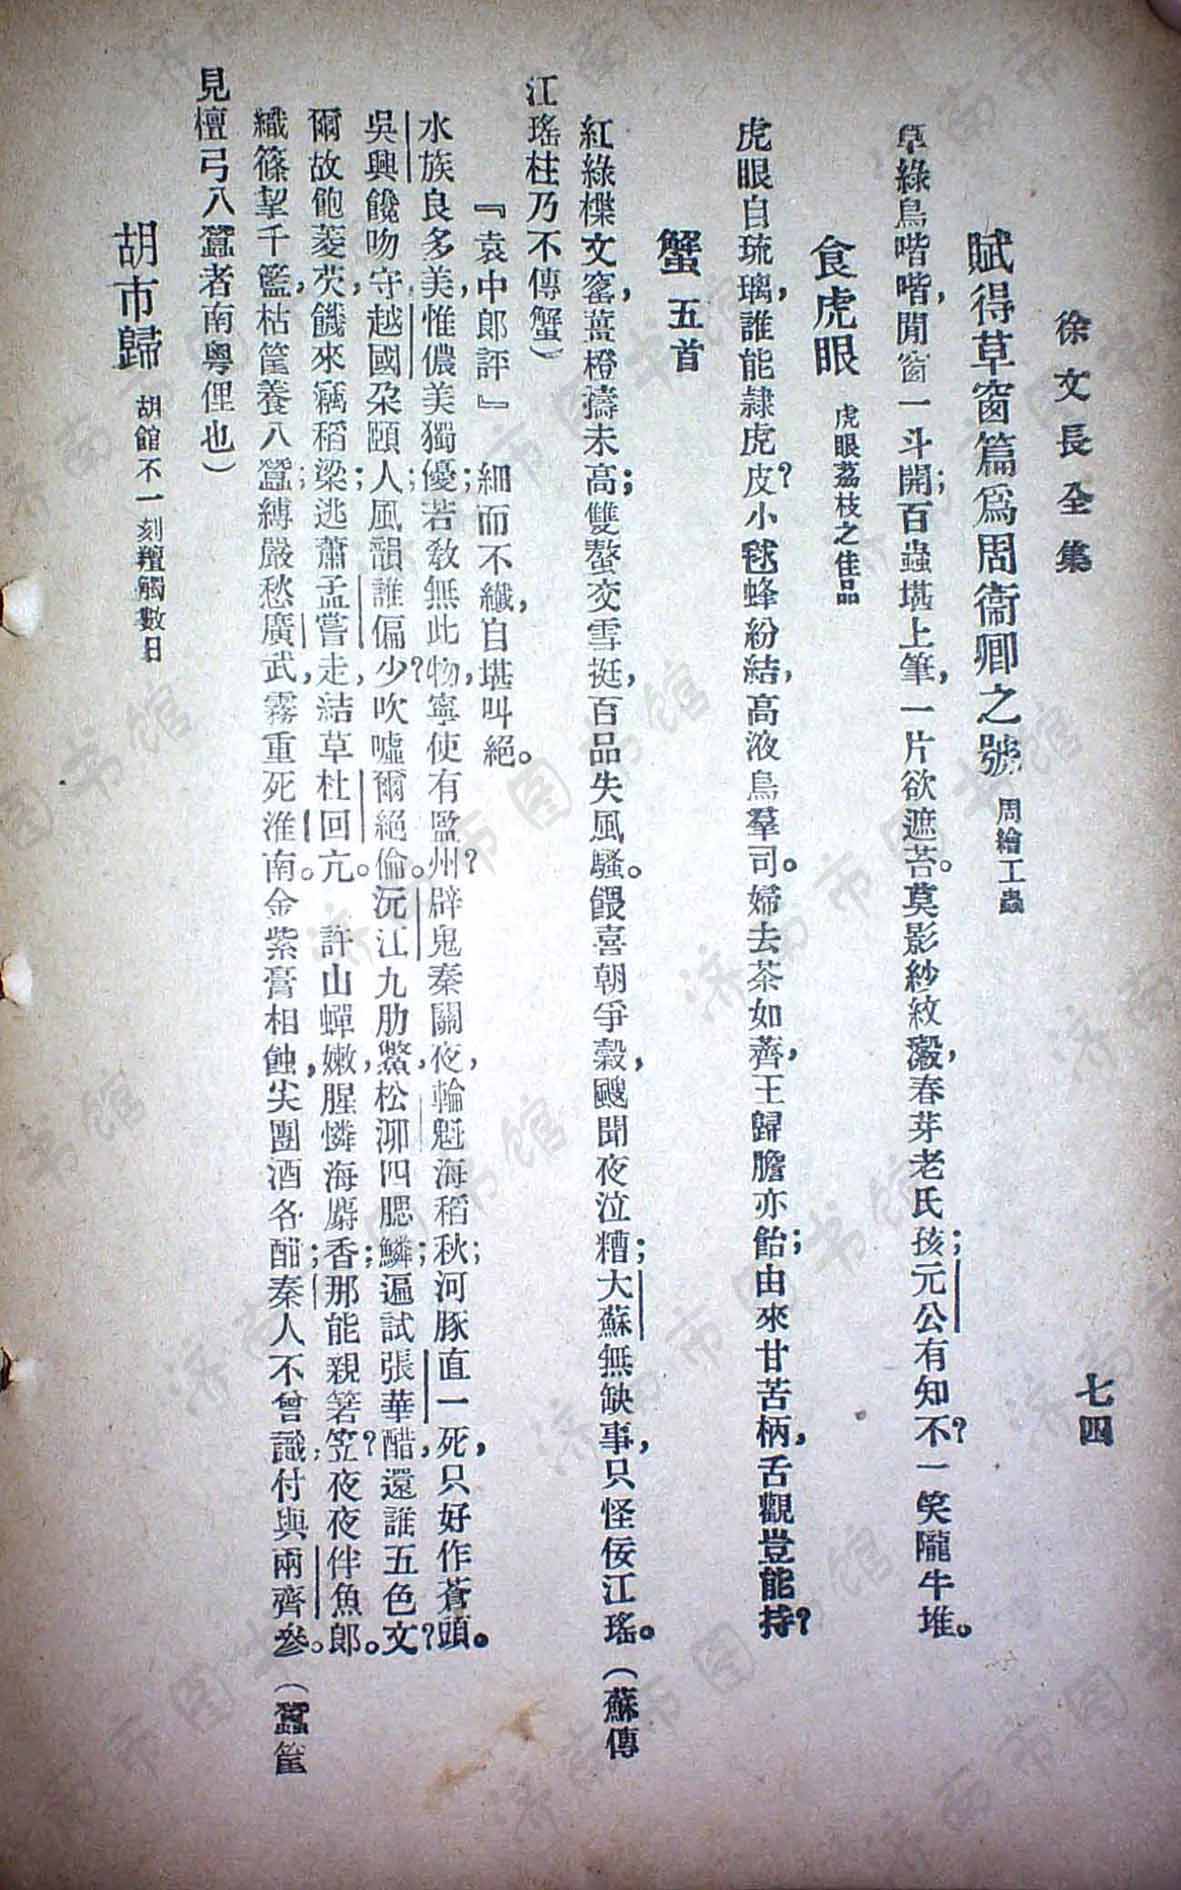 徐文長全集
七四
賦得草窗篇爲周衞卿之號 周繪工蟲
草綠鳥喈喈，閒窗一斗開；百蟲堪上筆，一片欲遮苔。莫影紗紋瀫，春芽老氏孩；元公有知不？一笑隴牛堆。
食虎眼 虎眼荔枝之佳品
虎眼白琉璃，誰能隷虎皮？小毬蜂紛結，高液鳥羣司。婦去茶如薺，王歸膽亦飴；由來甘苦柄，舌觀豈能持？
蟹 五首
紅綠楪文窰，薑橙擣未高；雙螯交雪挺，百品失風騷。餵喜朝爭穀，颸聞夜泣糟；大蘇無缺事，只怪佞江瑤。（蘇傳
江瑤柱乃不傳蟹）
『袁中郎評』細而不纖，自堪叫絕。
水族良多美，惟儂美獨優；若敎無此物，寧使有監州？辟鬼秦關夜，輪魁海稻秋；河豚直一死，只好作蒼頭。
吳興饞吻守，越國朶頤人；風韻誰偏少？吹噓爾絕倫。沅江九肋鱉，松泖四腮鱗；遍試張華醋，還誰五色文？
爾故飽菱芡，饑來竊稻梁；逃蕭孟嘗走，結草杜回亢。許山蟬嫩，腥憐海麝香；那能親箬笠？夜夜伴魚郎。
織篠挈千籃，枯筐養八蠶；縛嚴愁廣武，霧重死淮南。金紫膏相蝕，尖團酒各酣；秦人不曾識，付與兩齊參。（蠶筐
見檀弓八蠶者南粵俚也）
胡市歸 胡館不一刻羶觸數日